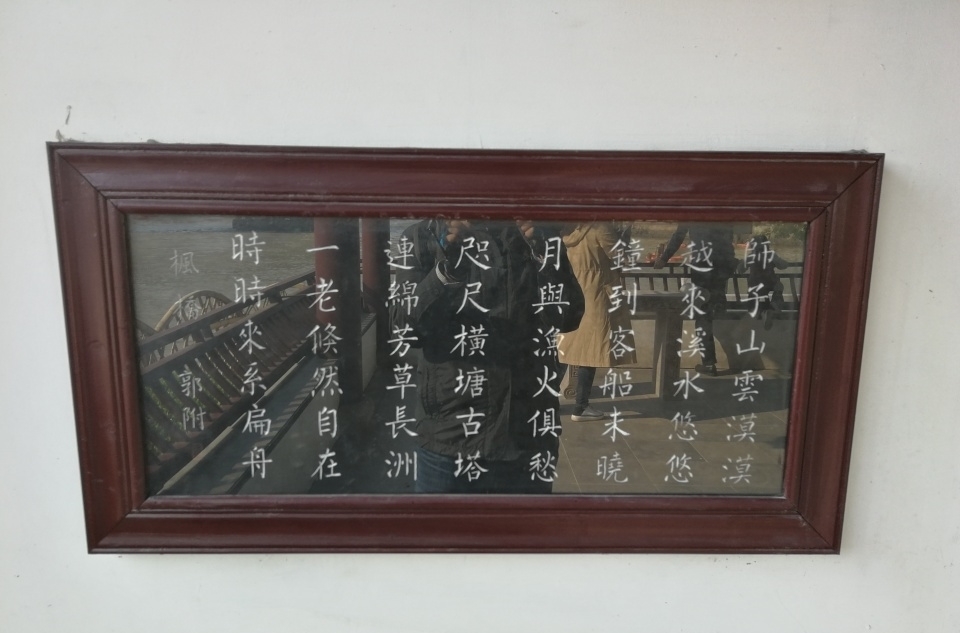 師子山雲漠漠
越來溪水悠悠
鐘到客船未曉
月與漁火俱愁
咫尺橫塘古塔
連綿芳草長洲
一老倏然自在
時時來系扁舟
楓橋 郭附